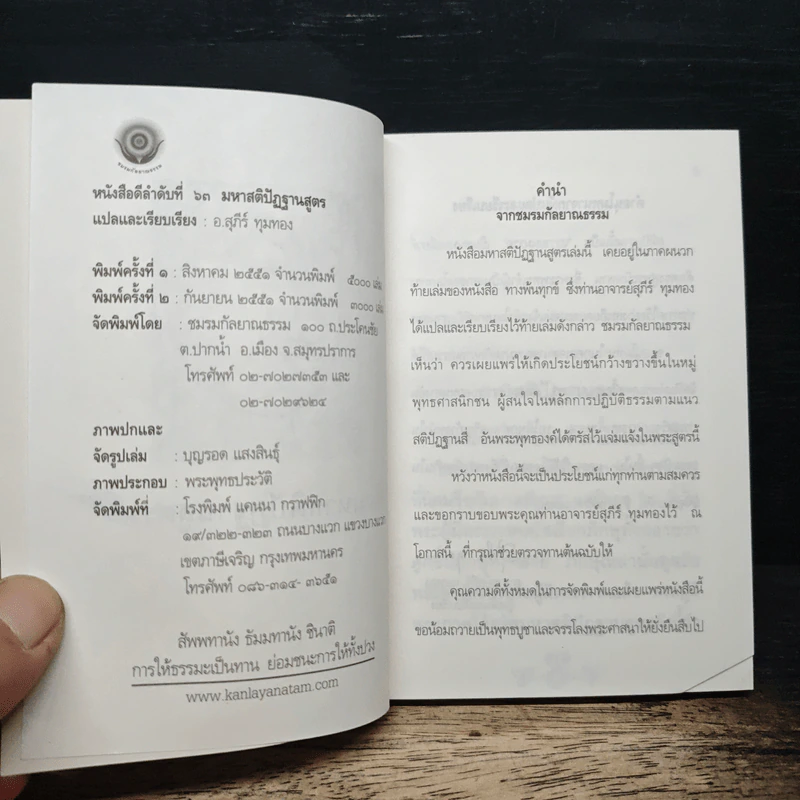 ชมรมกัลยาณธรรม
หนังสือดีลำดับที่ ๖๓ มหาสติปัฏฐานสูตร
แปลและเรียบเรียง : อ.สุภีร์ ทุมทอง
พิมพ์ครั้งที่ ๑ : สิงหาคม ๒๕๕๑ จำนวนพิมพ์ ๕๐๐๐ เล่ม
พิมพ์ครั้งที่ ๒ : กันยายน ๒๕๕๑ จำนวนพิมพ์ ๓๐๐๐ เล่ม
จัดพิมพ์โดย : ชมรมกัลยาณธรรม ๑๐๐ ถ.ประโคนชัย
ต.ปากน้ำ อ.เมือง จ.สมุทรปราการ
โทรศัพท์ ๐๒-๗๐๒๗๓๕๓ และ
๐๒-๗๐๒๙๖๒๔
ภาพปกและ
จัดรูปเล่ม : บุญรอด แสงสินธุ์
ภาพประกอบ : พระพุทธประวัติ
จัดพิมพ์ที่ : โรงพิมพ์ แคนนา กราฟฟิก
๑๙/๓๒๒-๓๒๓ ถนนบางแวก แขวงบางแวก
เขตภาษีเจริญ กรุงเทพมหานคร
โทรศัพท์ ๐๘๖-๓๑๔- ๓๖๕๑
สัพพทานัง ธัมมทานัง ชินาติ
การให้ธรรมะเป็นทาน ย่อมชนะการให้ทั้งปวง
www.kanlayanatam.com
คำนำ
จากชมรมกัลยาณธรรม
หนังสือมหาสติปัฏฐานสูตรเล่มนี้ เคยอยู่ในภาคผนวก
ท้ายเล่มของหนังสือ ทางพ้นทุกข์ ซึ่งท่านอาจารย์สุภีร์ ทุมทอง
ได้แปลและเรียบเรียงไว้ท้ายเล่มดังกล่าว ชมรมกัลยาณธรรม
เห็นว่า ควรเผยแพร่ให้เกิดประโยชน์กว้างขวางขึ้นในหมู่
พุทธศาสนิกชน ผู้สนใจในหลักการปฏิบัติธรรมตามแนว
สติปัฏฐานสี่ อันพระพุทธองค์ได้ตรัสไว้แจ่มแจ้งในพระสูตรนี้
หวังว่าหนังสือนี้จะเป็นประโยชน์แก่ทุกท่านตามสมควร
และขอกราบขอบพระคุณท่านอาจารย์สุภีร์ ทุมทองไว้ ณ
โอกาสนี้ ที่กรุณาช่วยตรวจทานต้นฉบับให้
คุณความดีทั้งหมดในการจัดพิมพ์และเผยแพร่หนังสือนี้
ขอน้อมถวายเป็นพุทธบูชาและจรรโลงพระศาสนาให้ยั่งยืนสืบไป